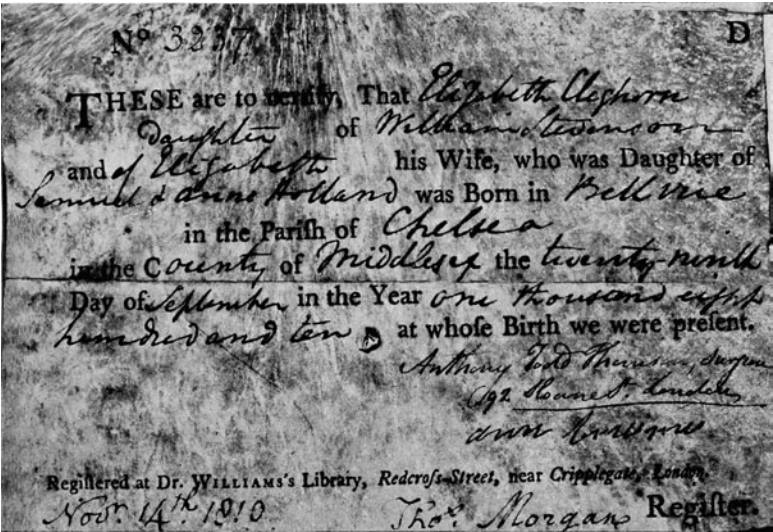 No 3237 D
THESE are to certify, That Elizabeth Cleghorn
daughter of William Stevenson
and of Elizabeth his Wife, who was Daughter of
Samuel & Anne Holland was Born in Bellvue
in the Pariſh of Chelsea
in the County of Middlesex the twenty-ninth
Day of September in the Year one thousand eight
hundred and ten at whoſe Birth we were preſent.
Anthony Todd Thomson, Surgeon
192 Sloane St. London
Ann
Regiſtered at Dr. WILLIAMS's Library, Redcroſs-Street, near Cripplegate, London.
Novr. 14th 1810 Thos. Morgan Regiſter.